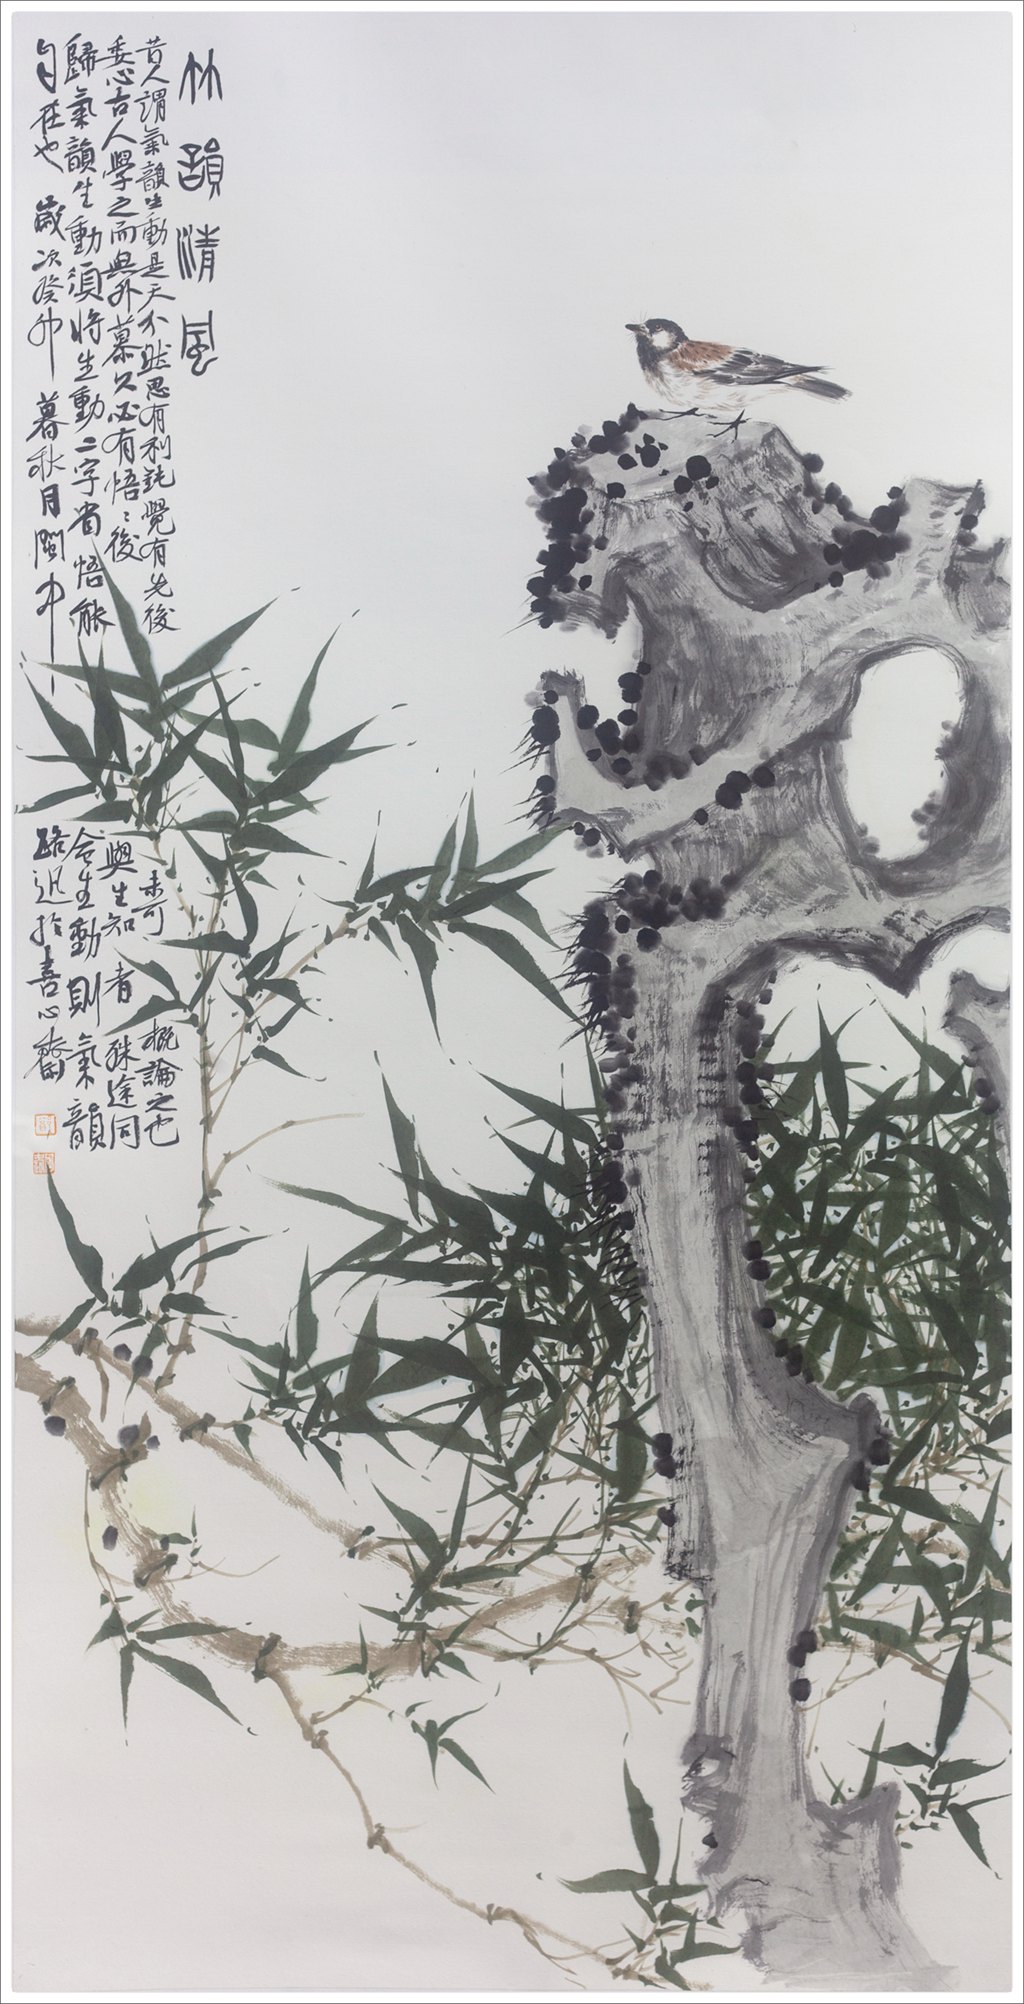 竹韻清風
昔人謂氣韻生動是天分然思有利鈍覺有先後未可概論之也
委心古人學之而無外慕久必有悟〻後與生知者殊途同
歸氣韻生動須將生動二字省悟能會生動則氣韻
自在也 歲次癸卯暮秋月閩中路迅於善心齋